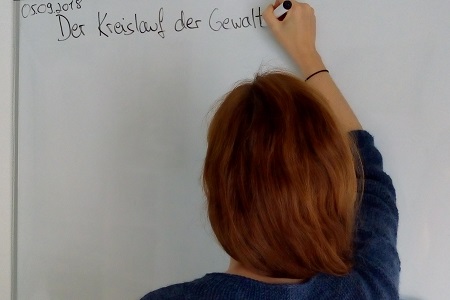 05.09.2018
Der Kreislauf der Gewalt